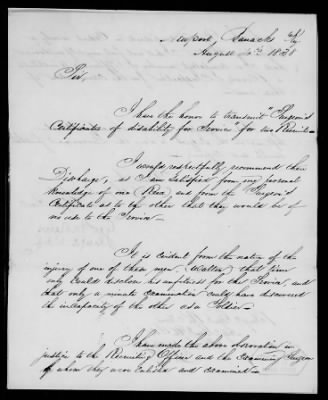 Newport Barracks Ky
August 1838
Sir
I have the honor to transmit "Surgeon's
Certificates of disability for Service for two Recruits.
I would respectfully recommend their
Discharge, as I am satisfied from my personal
Knowledge of one and from the Surgeon's
Certificate as to the other that they would be of
no use to the Service.
It is evident from the nature of the
injury of one of these men, (Walter) that time
only could disclose his unfitness for the Service, and
that only a minute examination could have discovered
the incapacity of the other as a Soldier.
I have made the above observation in
justice to the Recruiting Officer and the examining Surgeon
by whom they were Enlisted and examined.